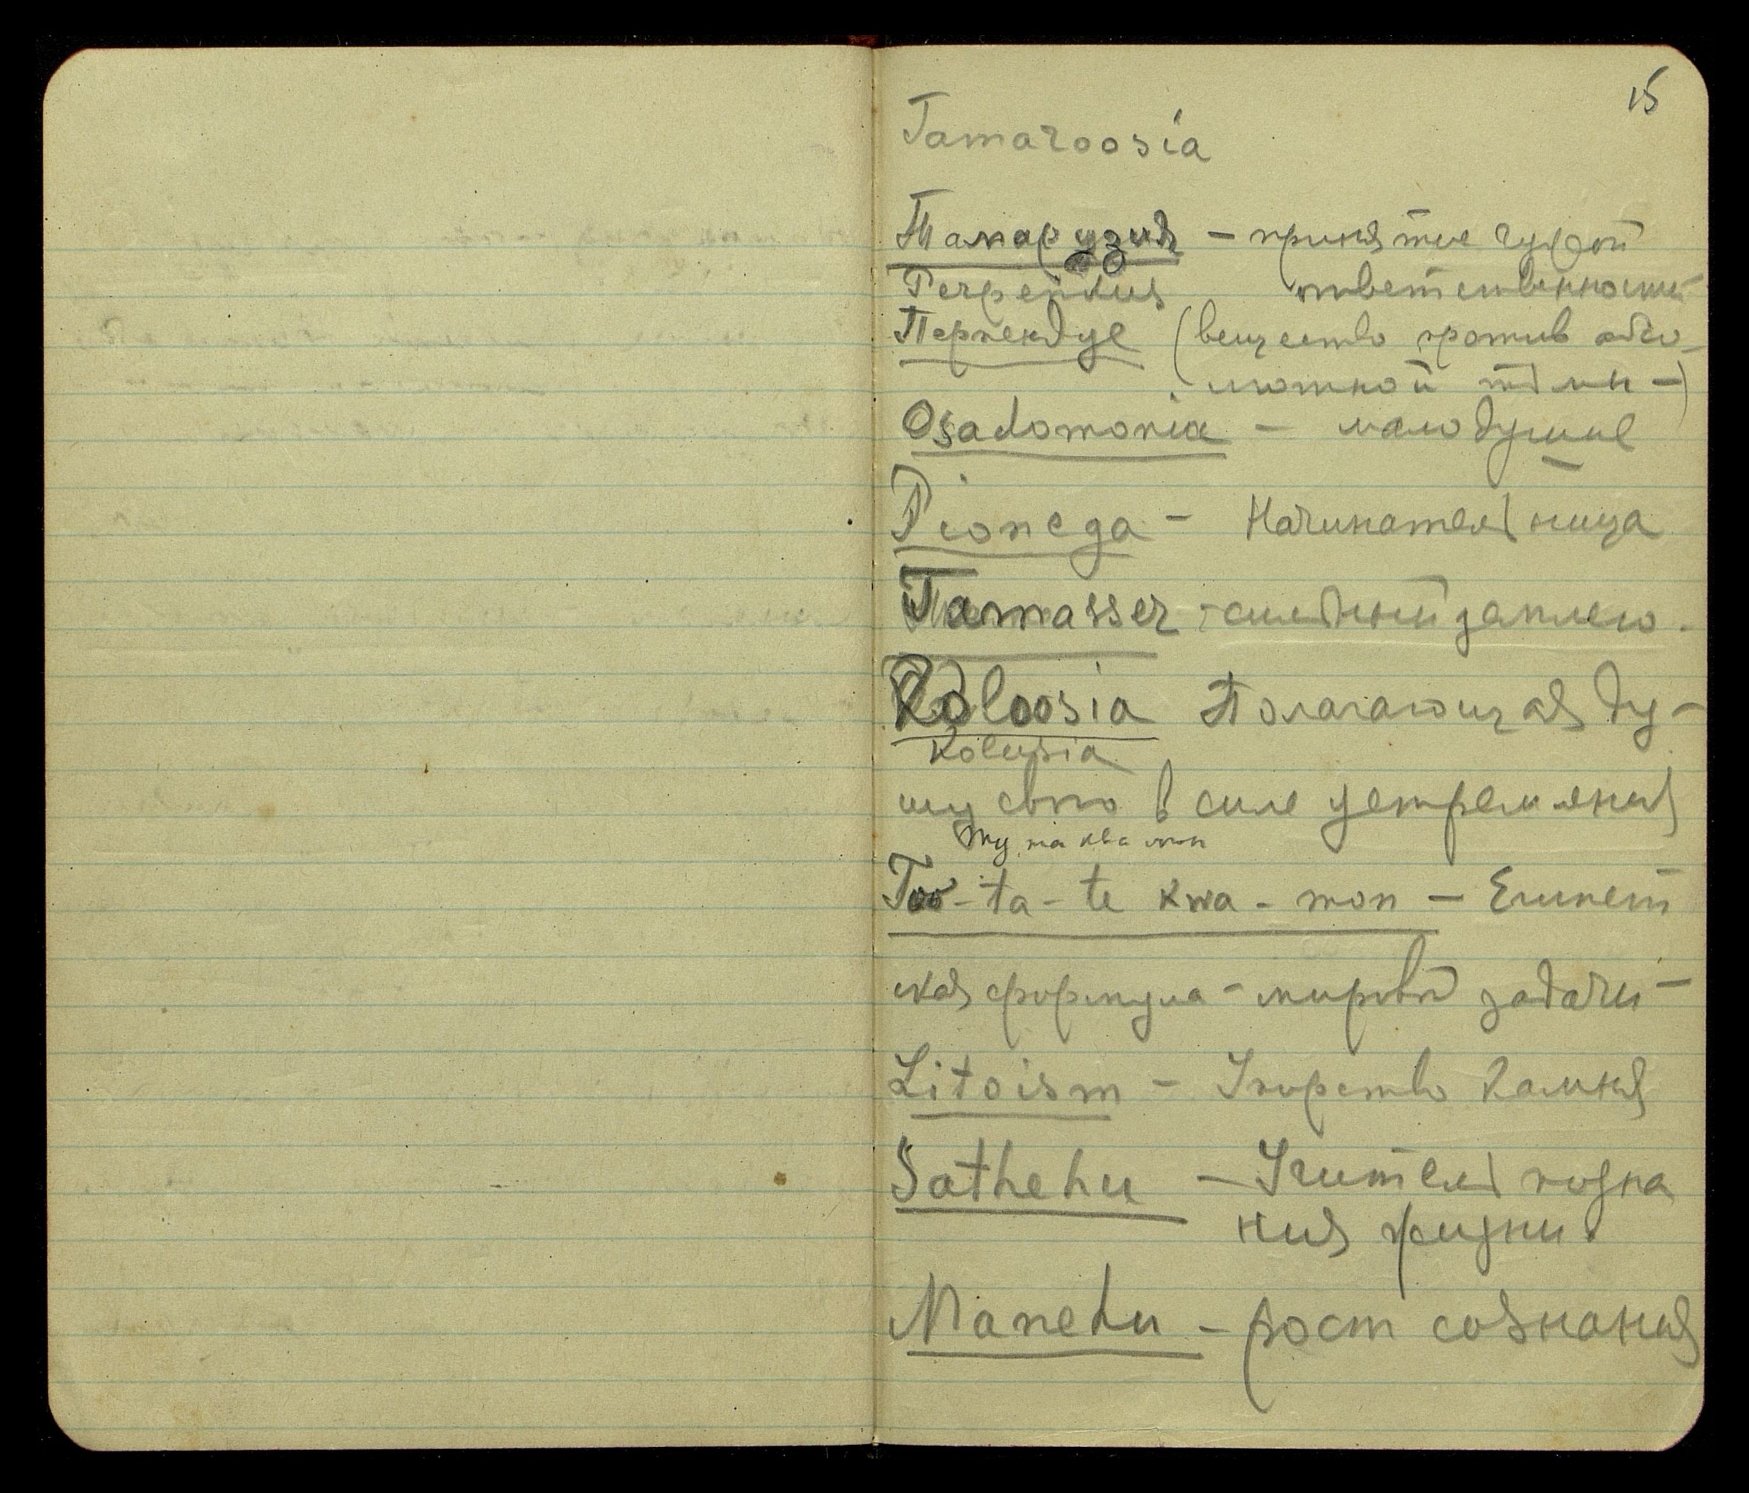 15
Tamaroosia
Тамарузия – принятие чужой
ответственности
Перпендуе (вещество против абсо-
лютной тьмы –)
Osadomonia – малодушие
Pionega – Начинательница
Tamasser – сильный заплеч.
Koloosia Полагающая ду-
Kolusia
шу свою в силе устремления
Ту та ква мон
Too-ta-te kwa-mon – Египет
ская формула – мировой задачи –
Litoism – Упорство Камня
Sathehu – Учитель позна
ния жизни.
Manehu – рост сознания